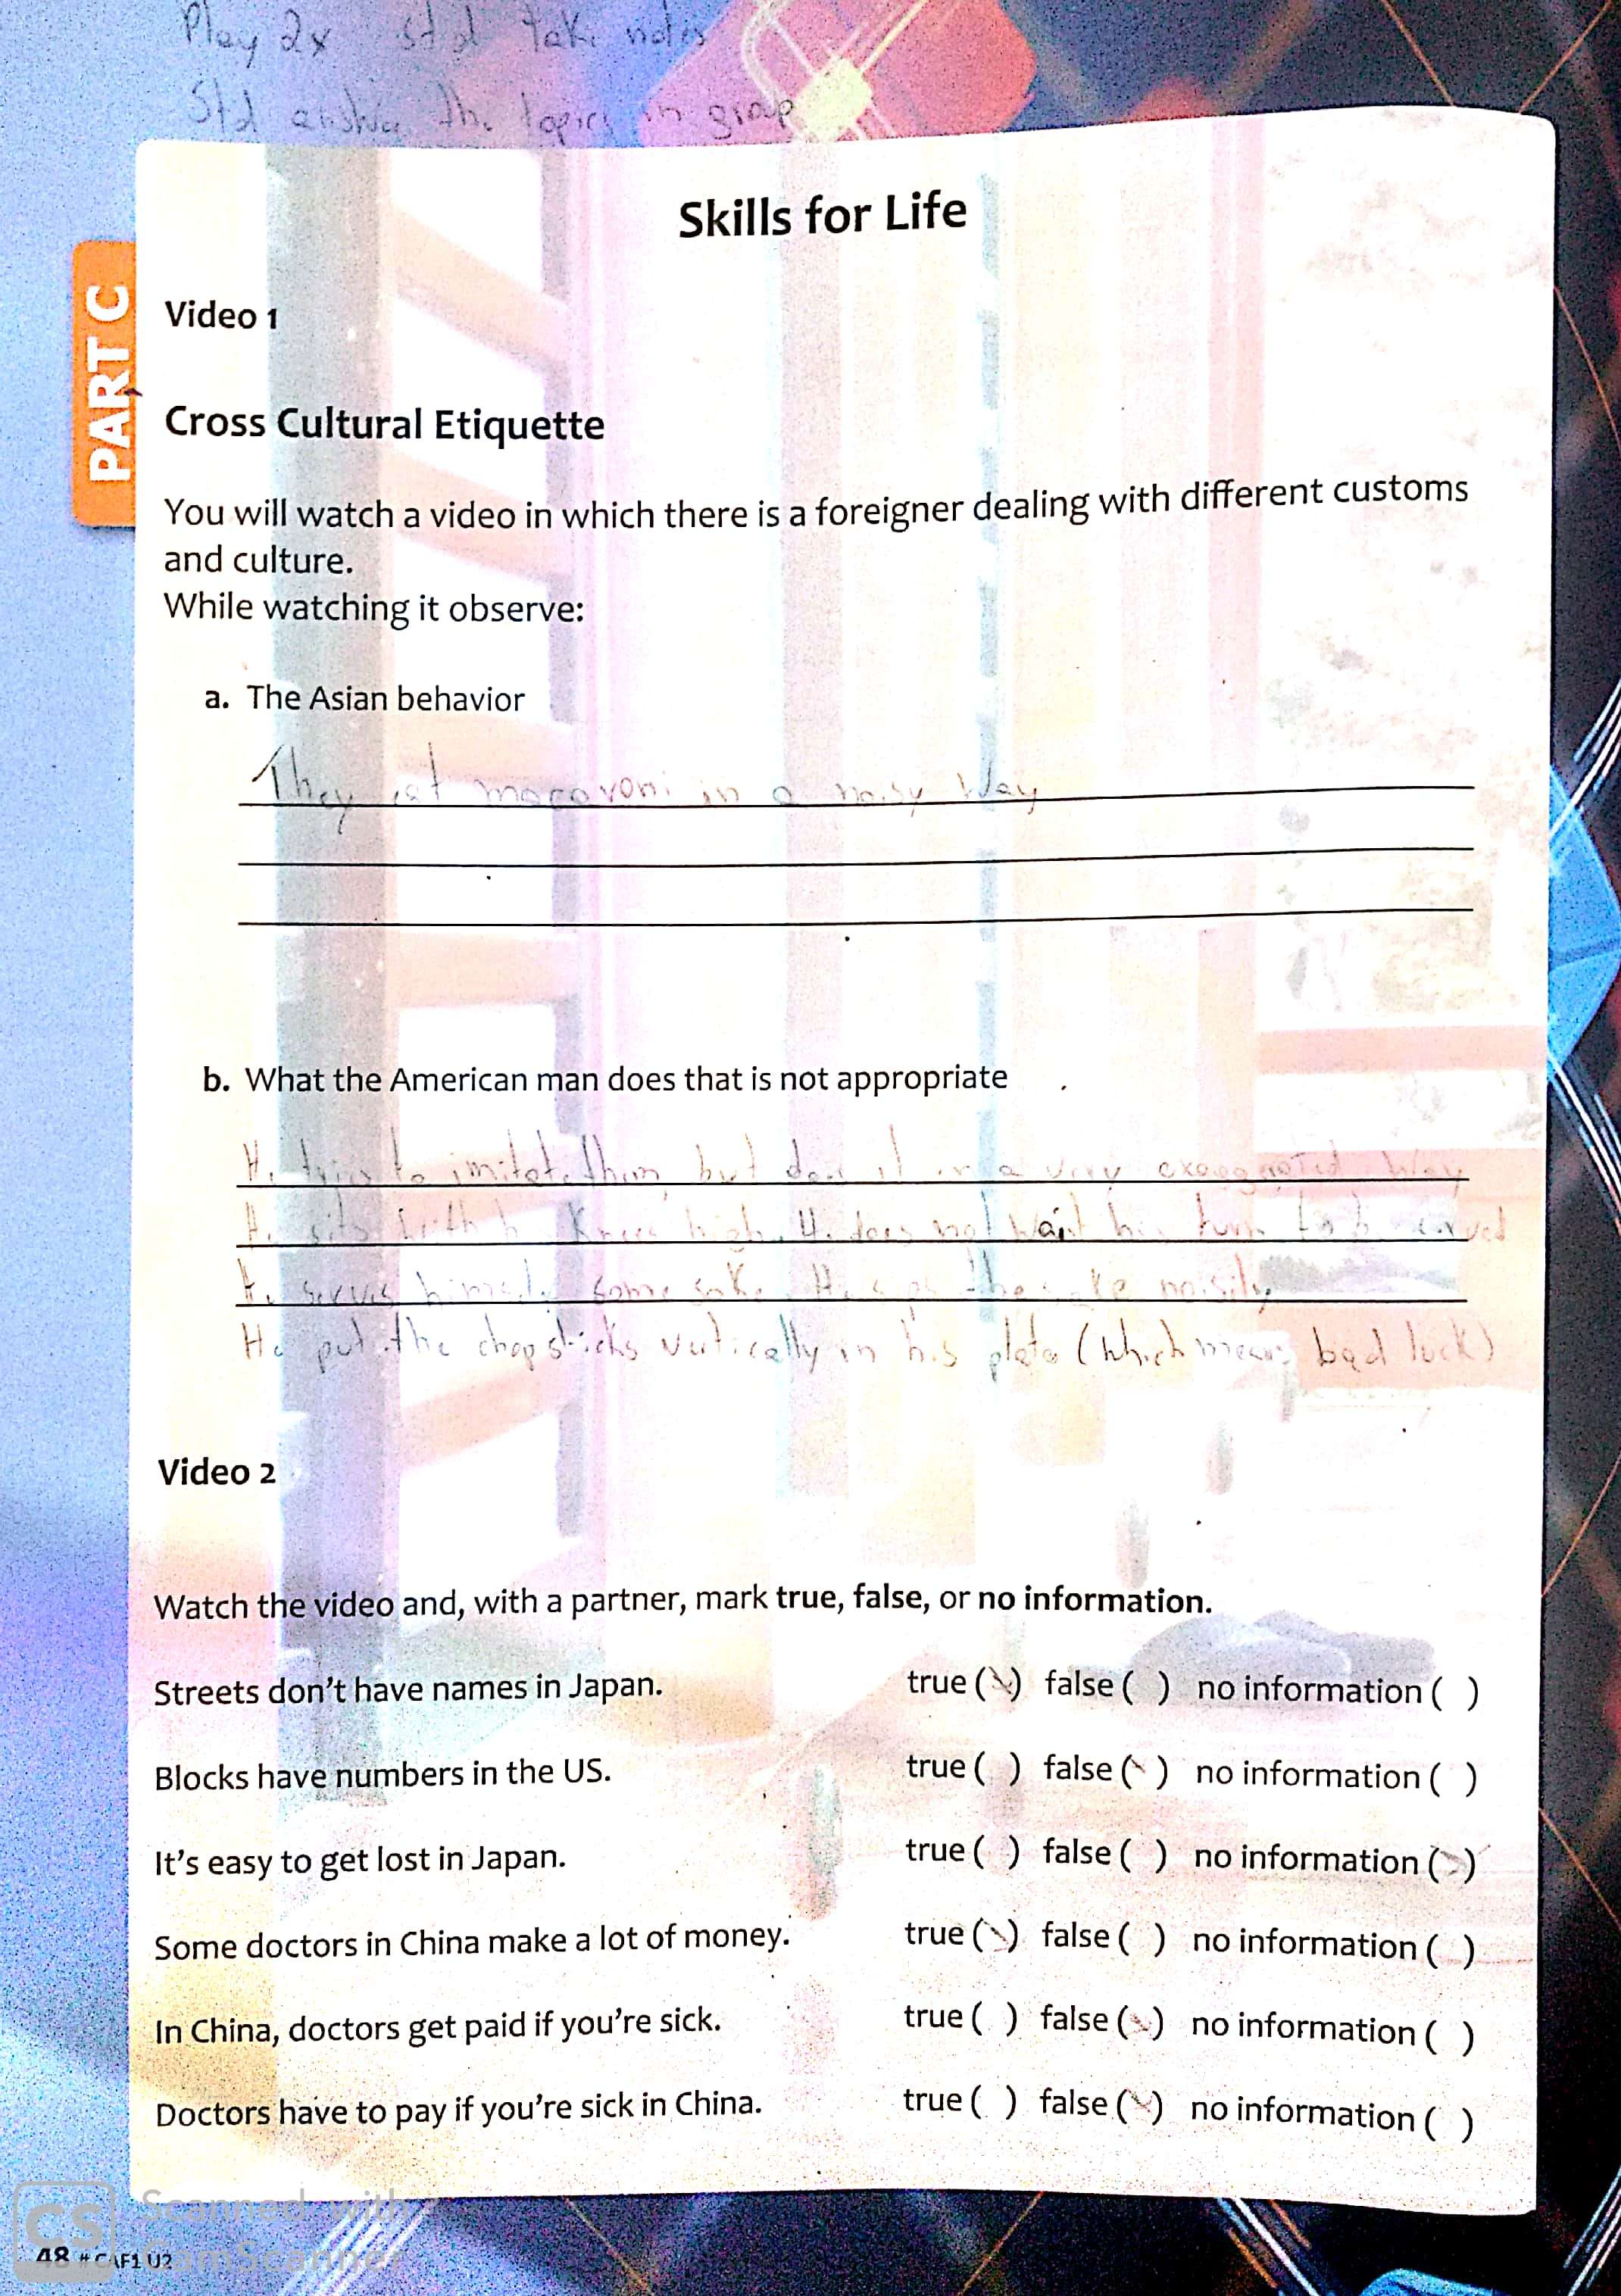 Play 2x std take notes
Std answer the topics in group
Skills for Life
PART C
Video 1
Cross Cultural Etiquette
You will watch a video in which there is a foreigner dealing with different customs
and culture.
While watching it observe:
a. The Asian behavior
They eat macaroni in a noisy way
b. What the American man does that is not appropriate
He tries to imitate them but does it in a very exaggerated way
He sits with knees high. He does not wait his turn to be served
He serves himself some sake. He sips the sake noisily
He put the chopsticks vertically in his plate (which means bad luck)
Video 2
Watch the video and, with a partner, mark true, false, or no information.
Streets don't have names in Japan. true ( ) false ( ) no information ( )
Blocks have numbers in the US. true ( ) false ( ) no information ( )
It's easy to get lost in Japan. true ( ) false ( ) no information ( )
Some doctors in China make a lot of money. true ( ) false ( ) no information ( )
In China, doctors get paid if you're sick. true ( ) false ( ) no information ( )
Doctors have to pay if you're sick in China. true ( ) false ( ) no information ( )
CS Scanned with
CamScanner
48 # CAF1 U2